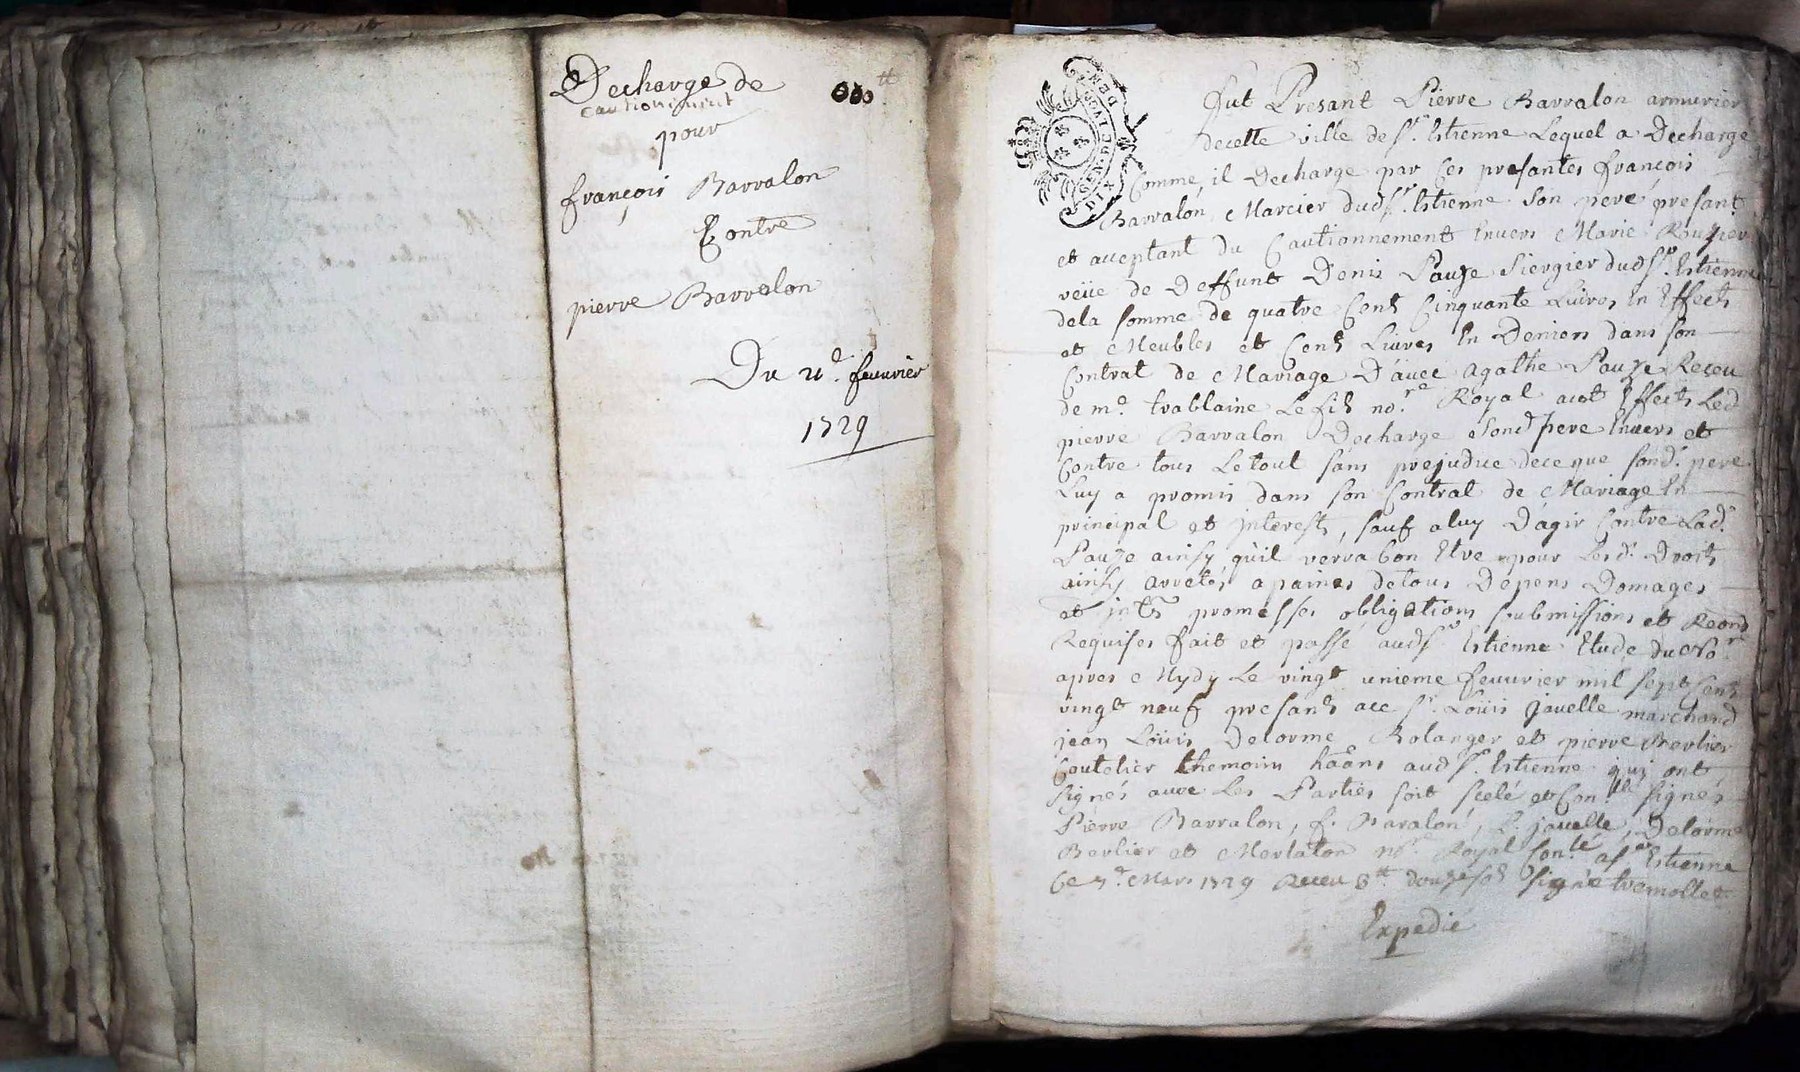 Decharge de
cautionement
pour
françois Barralon
Contre
pierre Barralon
Du 21e. feuurier
1729
GEN. DE
DIX
Fut Presant Pierre Barralon armurier
decette ville de St. Estienne Lequel a Decharge
Comme, il Decharge par Ces presantes françois
Barralon, Marcier dudst. Estienne Son pere, presant
et aceptant du Cautionnement Envers Marie Rouzier
veüe de Deffunt Denis Pauze Siergier dudst. Estienne
dela somme de quatre Cens Cinquante Liures En Effects
et Meubles et Cens Liures En Deniers dans son
Contrat de Mariage D'auec agathe Pauze Receu
de me. trablaine Le fils nore. Royal acot Effects Led
pierre Barralon Decharge Sond pere Enuers et
Contre tous Letout sans prejudice dece que sond. pere
Luy a promis dans son Contrat de Mariage En
principal et Interests, sauf aluy D'agir Contre Lad.
Pauze ainsy qu'il verra bon Etre pour Lesd. Droits
ainsy arretés apaines detous Depens Domages
et jnts promesses obligations submissions et Renon
Requises fait et passé audst Estienne Etude du Nore
apres Mydy Le vingt unieme feuurier mil sept Cens
vingt neuf presans aec sr. Loüis Jauelle marchand
jean Loüis Delorme Bolanger et pierre Berlier
Coutelier themoins haans audst. Estienne qui ont
signés auec Les Parties soit scelé et Conlle signés
Pierre Barralon, f. Baralon, L. jauelle, Delorme
Berlier et Merlaton nore. Royal Conlé ast Estienne
Ce 3e. Mars 1729 Receu 3tt douze sols signé tremollet
Expedié